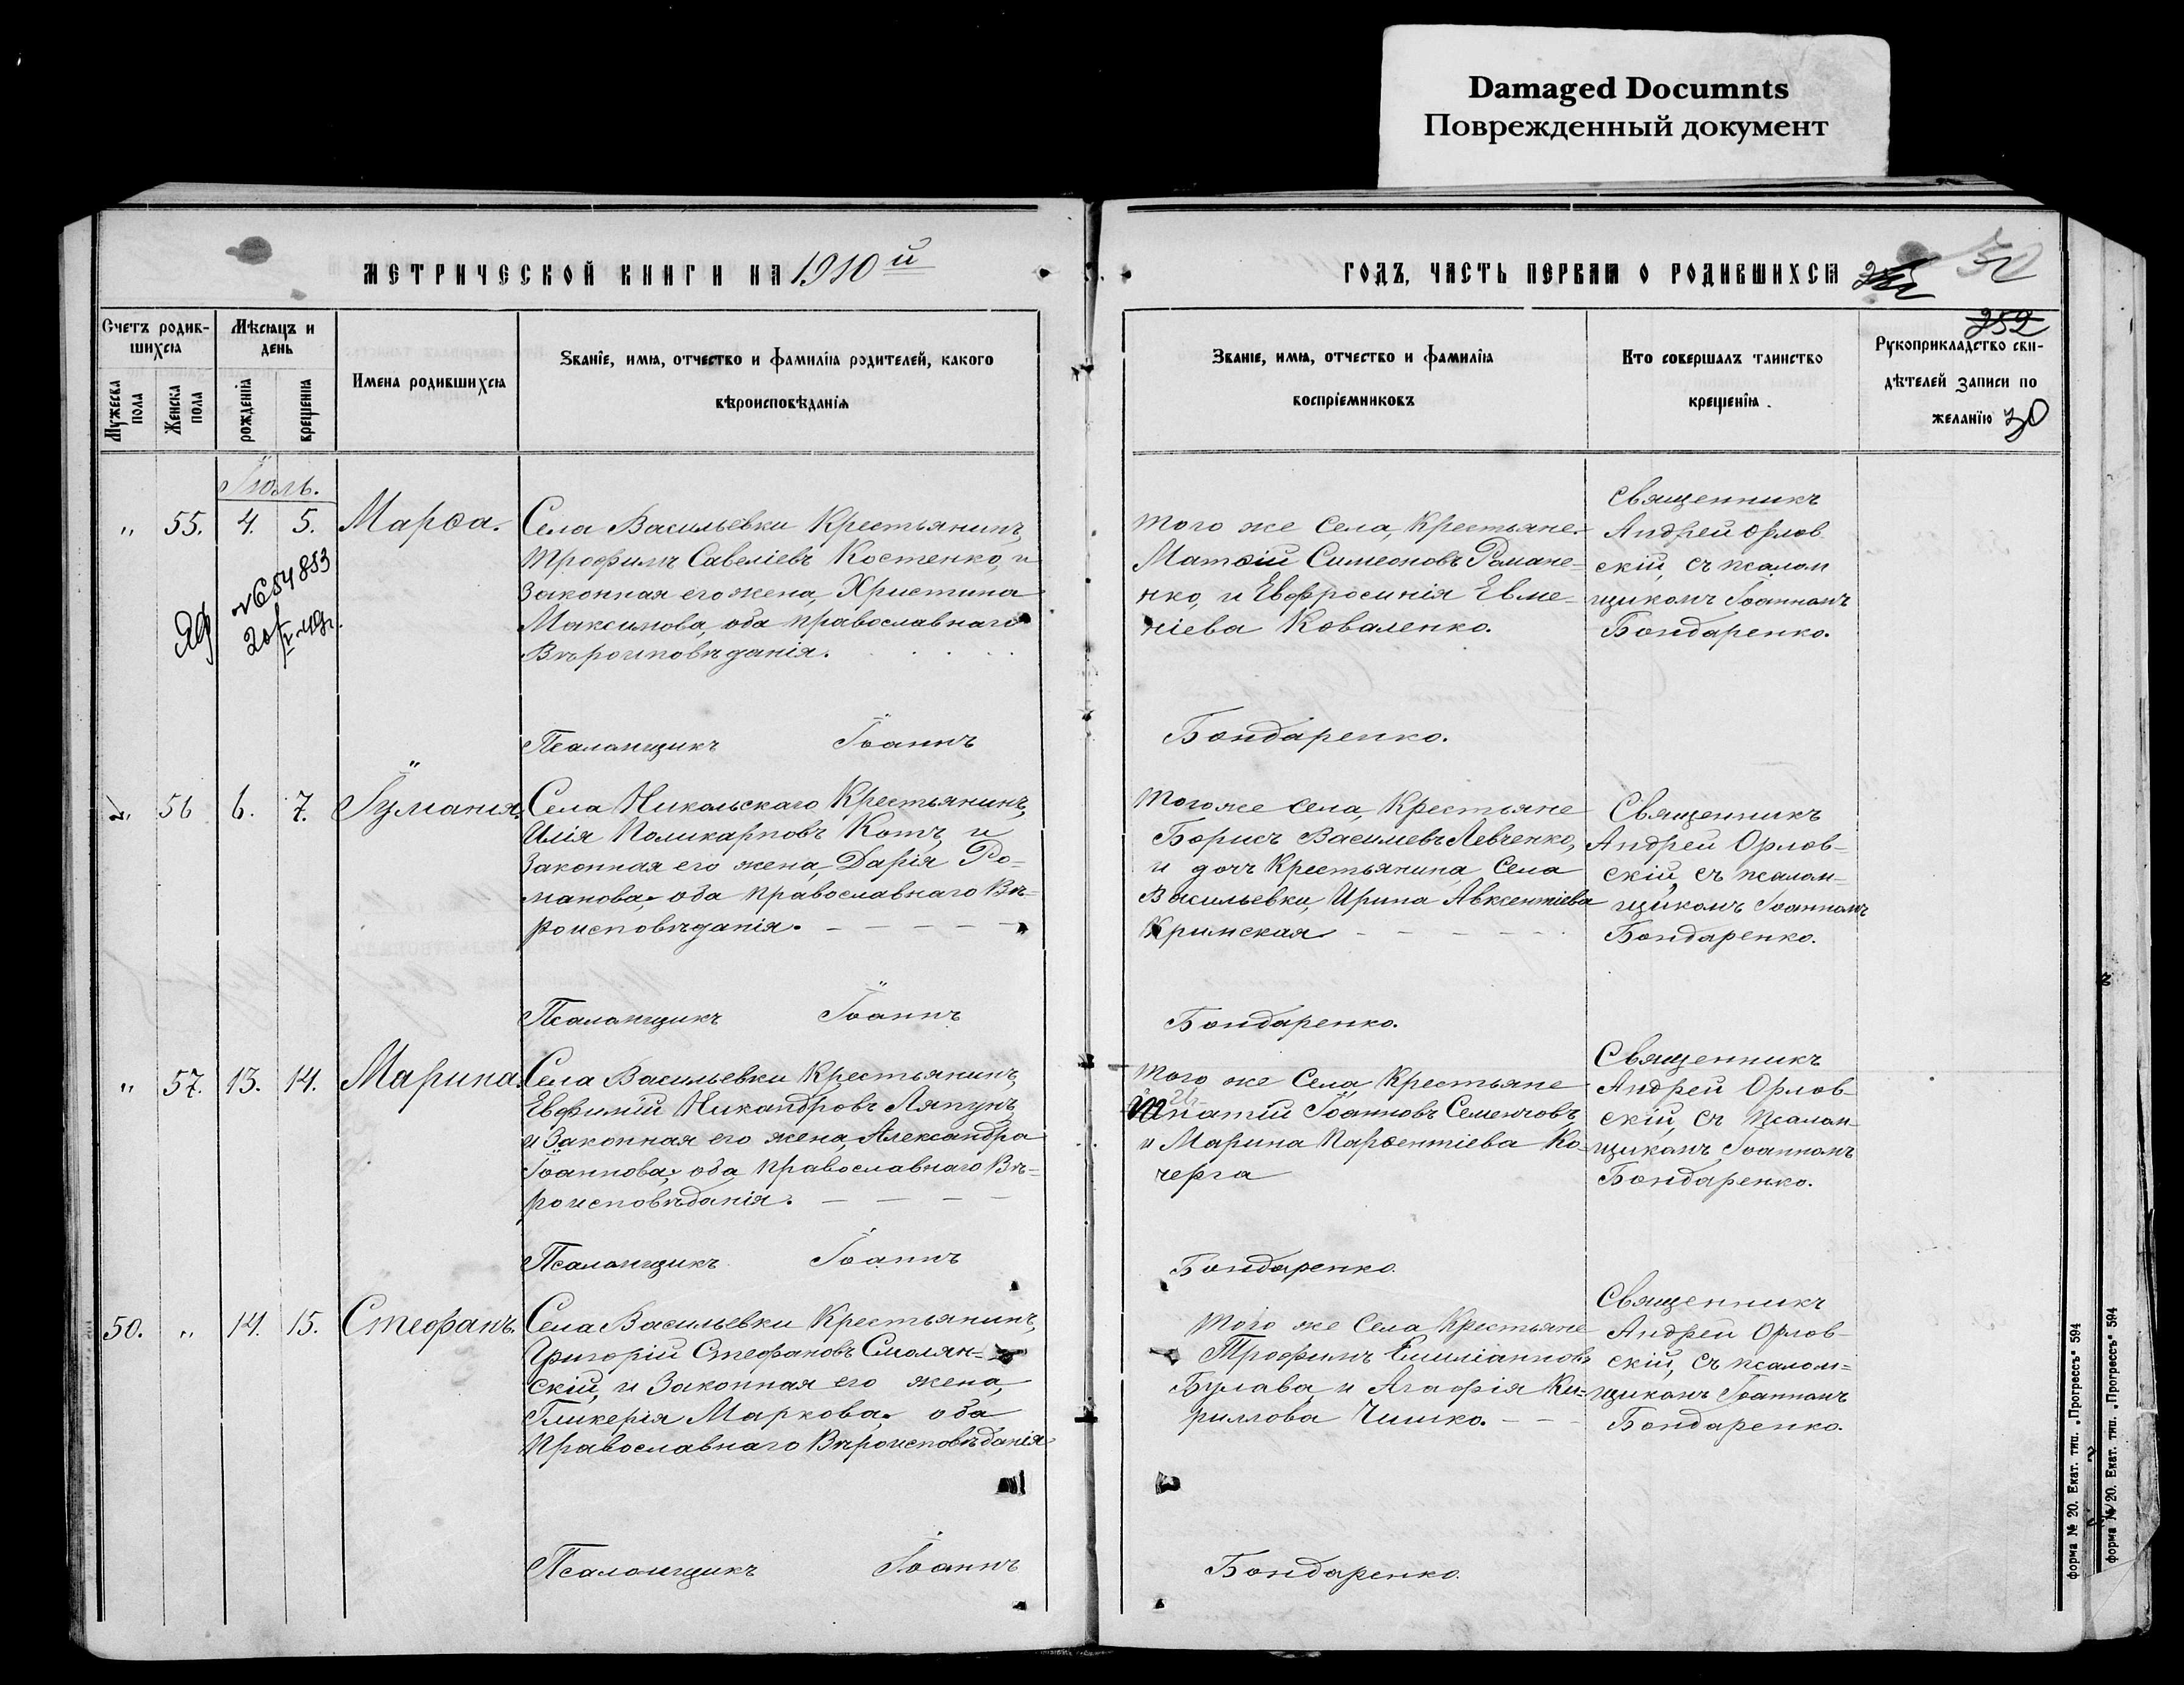 Damaged Documnts
Поврежденный документ
МЕТРИЧЕСКОЙ КНИГИ НА 1910й
Счетъ родив-
шихся
Мужеска
пола
Женска
пола
Мѣсяцъ и
день
рожденія
крещенія
Имена родившихся
Званіе, имя, отчество и фамилія родителей, какого
вѣроисповѣданія
Іюль.
„ 55. 4. 5. Марѳа.
Села Васильевки Крестьянинъ,
Трофимъ Савеліевъ Костенко, и
Законная его жена, Христина
Максимова, оба православнаго
Вѣроисповѣданія.
№654853
Псаломщикъ Іоаннъ
„ 56 6. 7. Іуліанія.
Села Никольскаго Крестьянинъ,
Илія Поликарповъ Котъ, и
Законная его жена, Дарія Ро-
манова, оба православнаго Вѣ-
роисповѣданія.
Псаломщикъ Іоаннъ
„ 57. 13. 14. Марина.
Села Васильевки Крестьянинъ,
Евфимій Никандровъ Ляпунъ,
и Законная его жена, Александра
Іоаннова, оба православнаго Вѣ-
роисповѣданія.
Псаломщикъ Іоаннъ
50. „ 14. 15. Стефанъ.
Села Васильевки Крестьянинъ,
Григорій Стефановъ Смолян-
скій, и Законная его жена,
Гликерія Маркова, оба
Православнаго Вѣроисповѣданія
Псаломщикъ Іоаннъ
ГОДЪ, ЧАСТЬ ПЕРВАЯ О РОДИВШИХСЯ
252
Званіе, имя, отчество и фамилія
воспріемниковъ
Кто совершалъ таинство
крещенія.
Рукоприкладство сви-
дѣтелей записи по
желанію 30
Того же Села, Крестьяне
Матѳій Симеоновъ Романе-
нко, и Евфросинія Евме-
ніева Коваленко.
Священникъ
Андрей Орлов
скій, съ псалом
щикомъ Іоанномъ
Бондаренко.
Бондаренко.
Того же села, Крестьяне
Борисъ Василіевъ Левченко,
и дочь Крестьянина, Села
Васильевки, Ирина Авксентіева
Кримская
Священникъ
Андрей Орлов-
скій, съ псалом-
щикомъ Іоанномъ
Бондаренко.
Бондаренко.
Того же Села, Крестьяне
Ипатій Іоанновъ Семенчовъ,
и Марина Парѳентіева Ко-
черга
Священникъ
Андрей Орлов-
скій, съ Псалом-
щикомъ Іоанномъ
Бондаренко.
Бондаренко.
Того же Села Крестьяне
Трофимъ Емиліановъ
Булава и Агафія Ки-
риллова Чишко.
Священникъ
Андрей Орлов-
скій, съ псалом=
щикомъ Іоанномъ
Бондаренко.
Бондаренко.
форма № 20. Екат. тип. „Прогрессъ" 594
форма № 20. Екат. тип. „Прогрессъ" 594